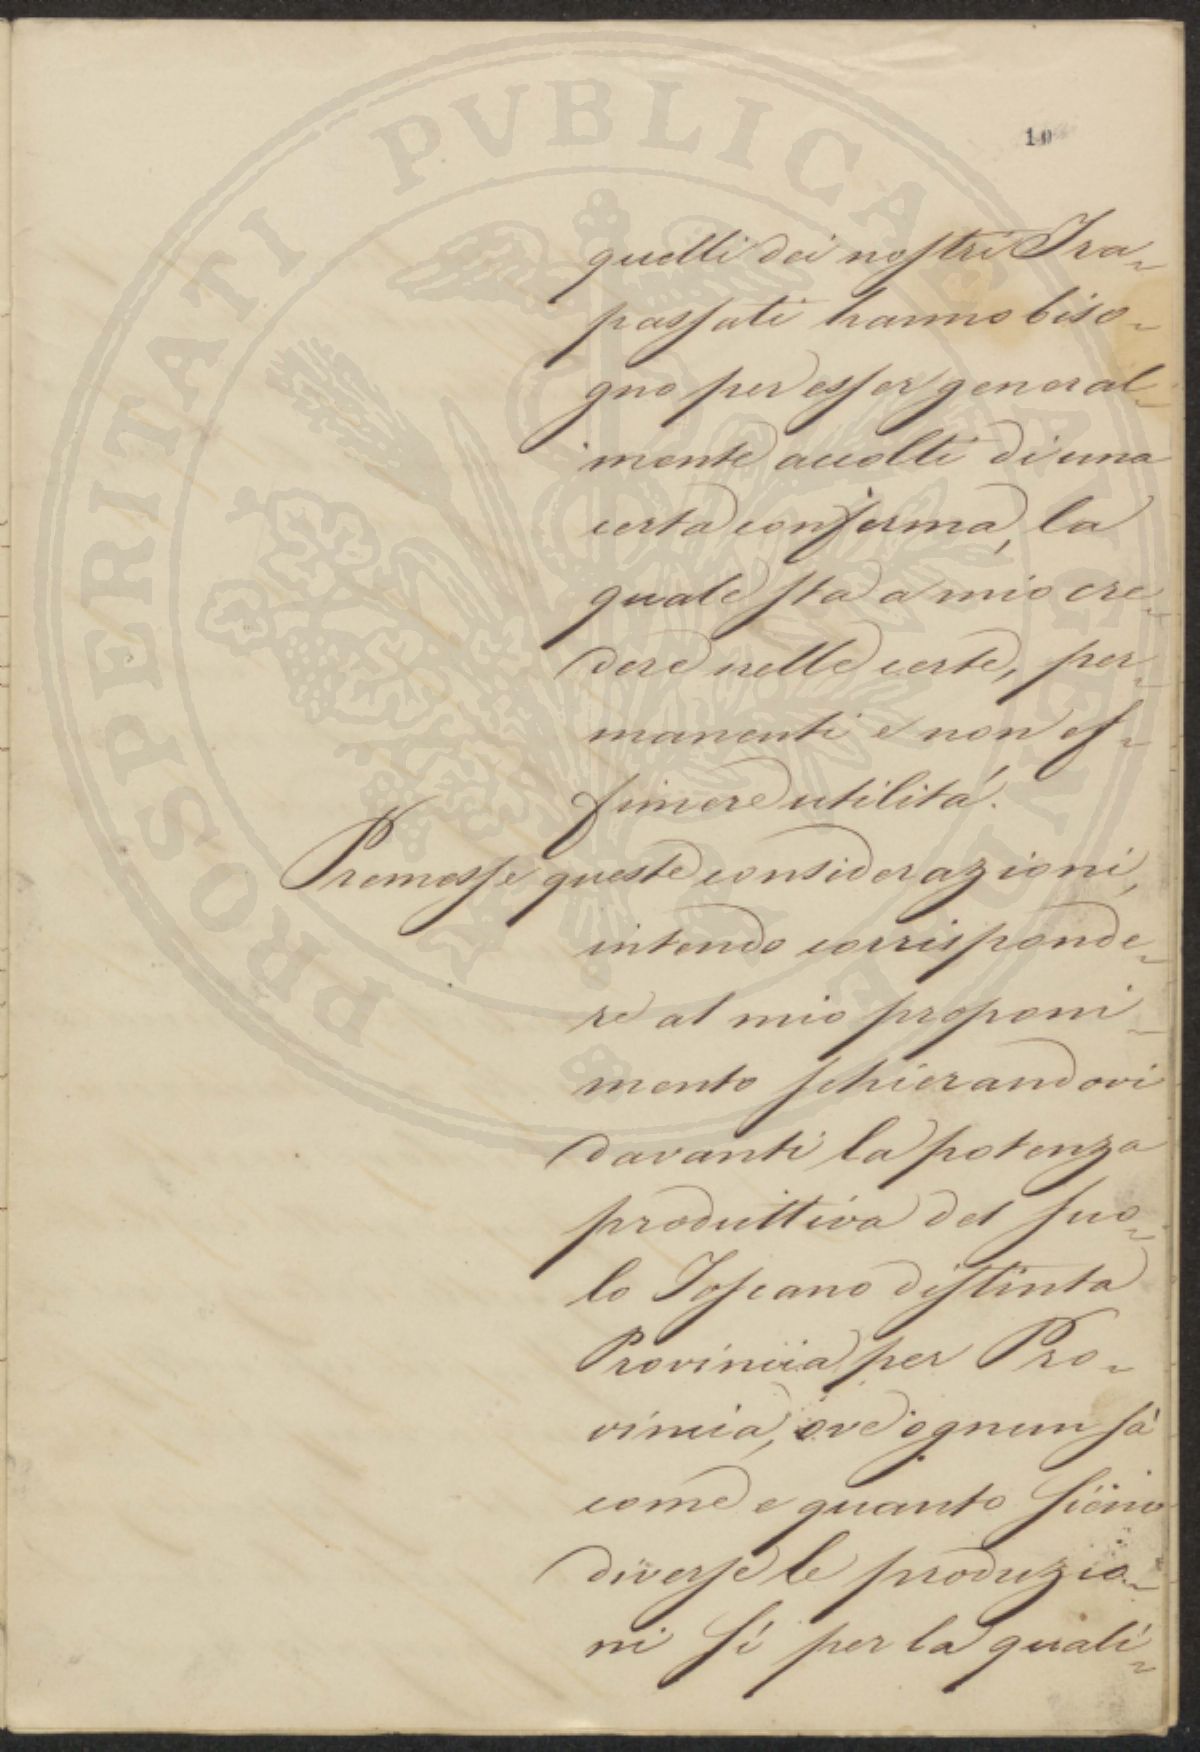 10
quelli dei nostri Tra-
passati hanno biso-
gno per esser general-
mente accolti di una
certa conferma, la
quale sta a mio cre-
dere nelle certe, per-
manenti e non ef-
fimere utilitá.
Premesse queste considerazioni,
intendo corrisponde-
re al mio proponi-
mento schierandovi
davanti la potenza
produttiva del suo-
lo Toscano distinta
Provincia per Pro-
vincia, ove ognun sà
come e quanto sieno
diverse le produzio-
ni sí per la quali-
PROSPERITATI PVBLICAE AVGENDAE